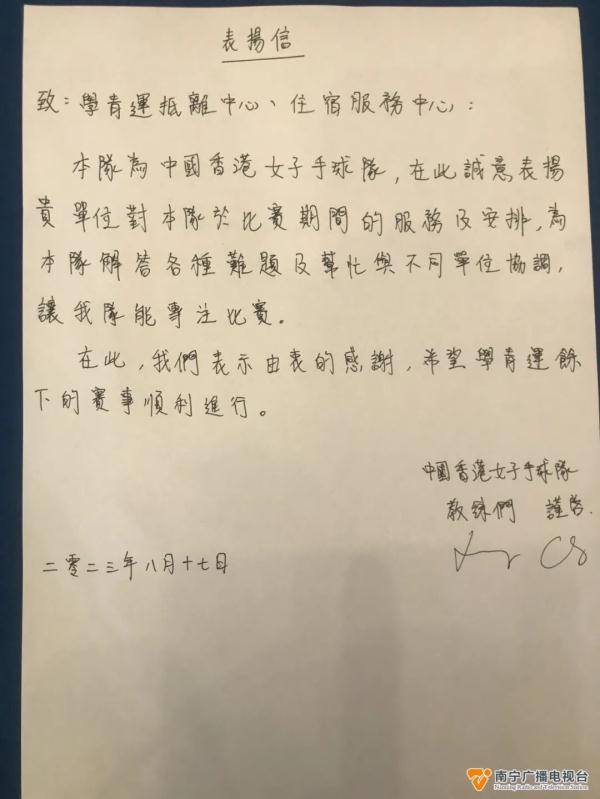 表揚信
致：學青運抵離中心、住宿服務中心：
本隊為中國香港女子手球隊，在此誠意表揚
貴單位對本隊於比賽期間的服務及安排，為
本隊解答各種難題及幫忙與不同單位協調，
讓我隊能專注比賽。
在此，我們表示由表的感謝，希望學青運餘
下的賽事順利進行。
中國香港女子手球隊
教練們 謹啓.
二零二三年八月十七日
南宁广播电视台
Nanning Radio and Television Station